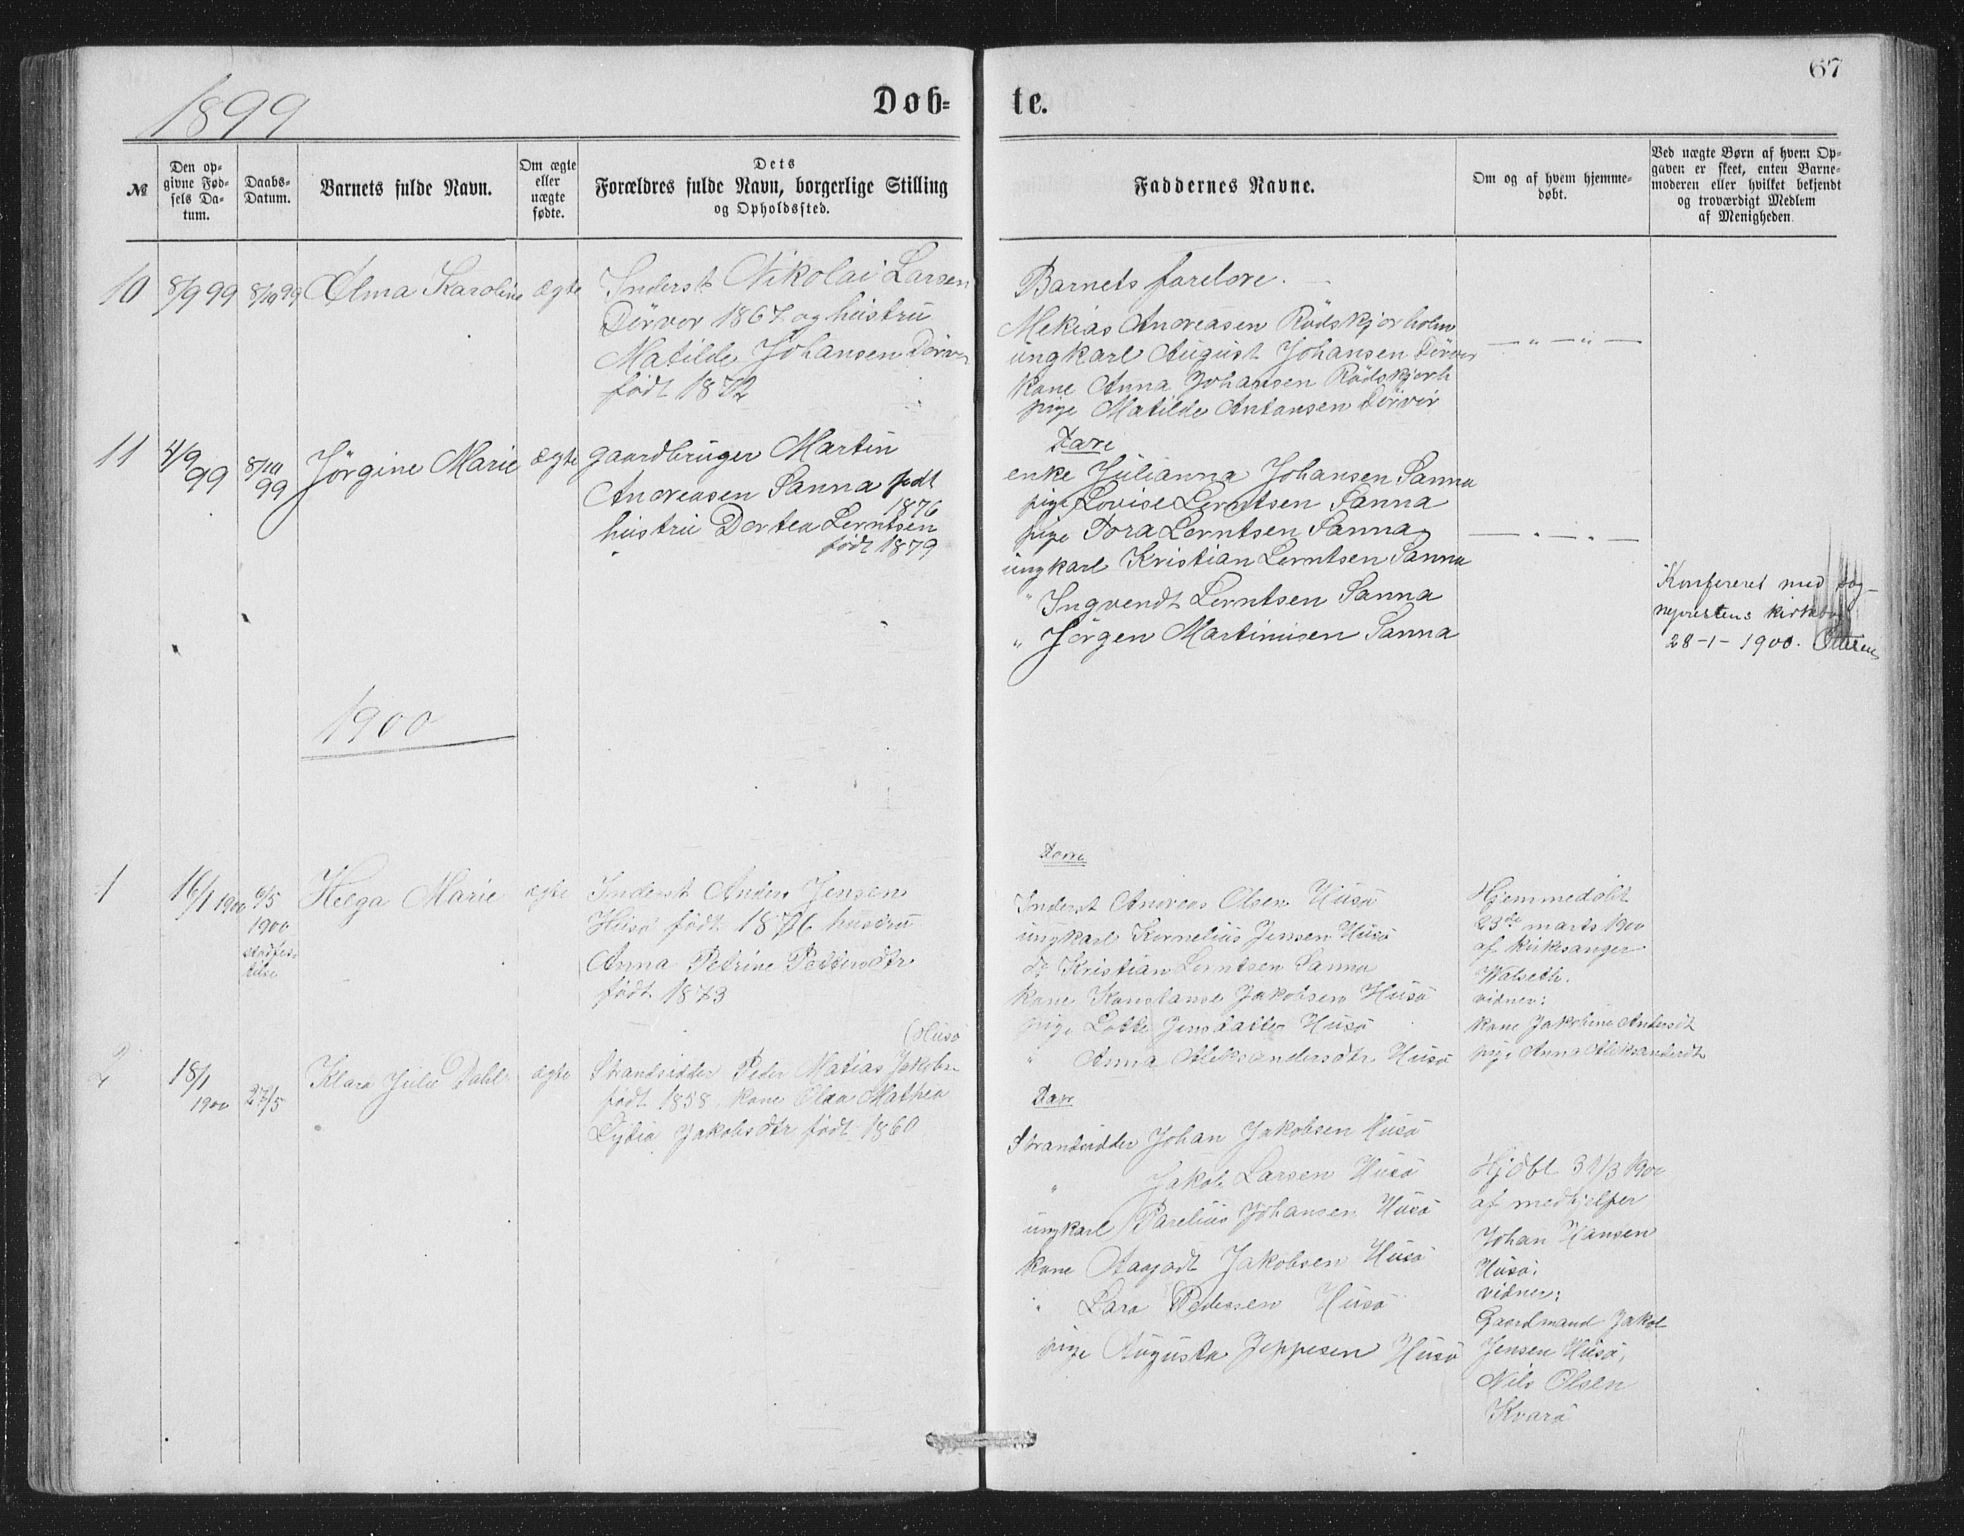 1899
Døb-
te.
67
№
Den op-
givne Fød-
sels Da-
tum.
Daabs-
Datum.
Barnets fulde Navn.
Om ægte
eller
uægte
fødte.
Dets
Forældres fulde Navn, borgerlige Stilling
og Opholdssted.
Faddernes Navne.
Om og af hvem hjemme-
døbt.
Ved uægte Børn af hvem Op-
gaven er skeet, enten Barne-
moderen eller hvilket bekjendt
og troværdigt Medlem
af Menigheden.
10
8/9 99
8/10 99
Alma Karoline
ægte
Inderst Nikolai Larsen
Dörvær 1867 og hustru
Matilde Johansen Dörvær
født 1872
Barnets foreldre.
Mekias Andreasen Rödskjærholm
ungkarl August Johansen Dörvær
kone Anna Johansen Rödskjærh
pige Matilde Antonsen Dörvær
— " — " —
11
4/9
99
8/10
99
Jörgine Marie
ægte
gaardbruger Martin
Andreasen Sanna født
1876
hustru Dortea Lerntsen
født 1879
Fare
enke Julianna Johansen Sanna
pige Lovise Lerntsen Sanna
pige Tora Lerntsen Sanna
ungkarl Kristian Lerntsen Sanna
" Ingvendt Lerntsen Sanna
" Jörgen Martinusen Sanna
— " — " —
Konfereret med sog-
neprestens kirkebog
28-1-1900.
1900
1
16/1 1900
6/5
1900
stadfes-
telse
Helga Marie
ægte
Inderst Anders Jensen
Husö født 1876 hustru
Anna Petrine Pettersdtr
født 1873
Inderst Andreas Olsen Husö
ungkarl Kornelius Jensen Husö
do Kristian Lerntsen Sanna
kone Konstanse Jakobsen Husö
pige Lotte Jensdatter Husö
" Anna Aleksandersdtr Husö
Hjemmedöbt
23de marts 1900
af kirkesanger
Walseth.
vidner:
kone Jakobine Andersdt
pige Anna Aleksandersdt
2
18/1
1900
27/5
Klara Julie Dahl
ægte
(Husö
Strandsidder Peder Matias Jakobs-
født 1858, kone Olea Mathea
Lydia Jakobsdtr født 1860
Strandsidder Johan Jakobsen Husö
" Jakob Larsen Husö
ungkarl Parelius Johansen Husö
kone Jakobsen Husö
" Lara Pedersen Husö
pige Augusta Jeppesen Husö
Hjdbt 31/3 1900
af medhjelper
Johan Hansen
Husö;
vidner:
Gaardmand Jakob
Jensen Husö,
Nils Olsen
Kvarö